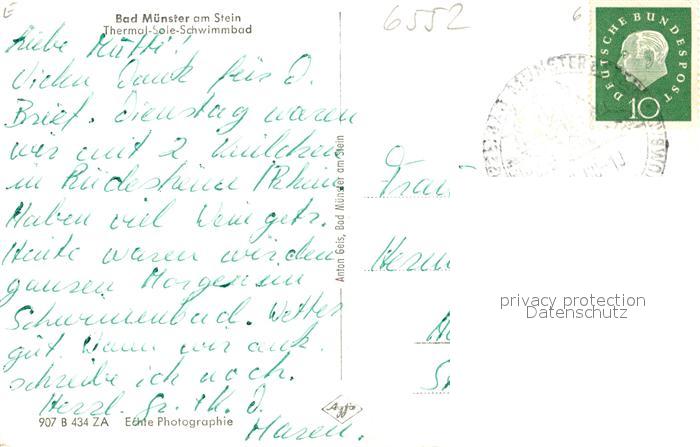 6552
Bad Münster am Stein
Thermal-Sole-Schwimmbad
Liebe Mutti!
Vielen Dank für D.
Brief. Dienstag waren
wir mit 2
in Rüdesheim /Rhein
Haben viel Wein getr.
Heute waren wir den
ganzen Morgen im
Schwimmbad. Wetter
gut. Wann wir ank.
schreibe ich noch.
Herzl. Gr. + K. D.
Maren.
907 B 434 ZA Echte Photographie
Anton Geis, Bad Münster am Stein
Agfa
DEUTSCHE BUNDESPOST
10
BAD MÜNSTER
Frau
Herm
privacy protection
Datenschutz